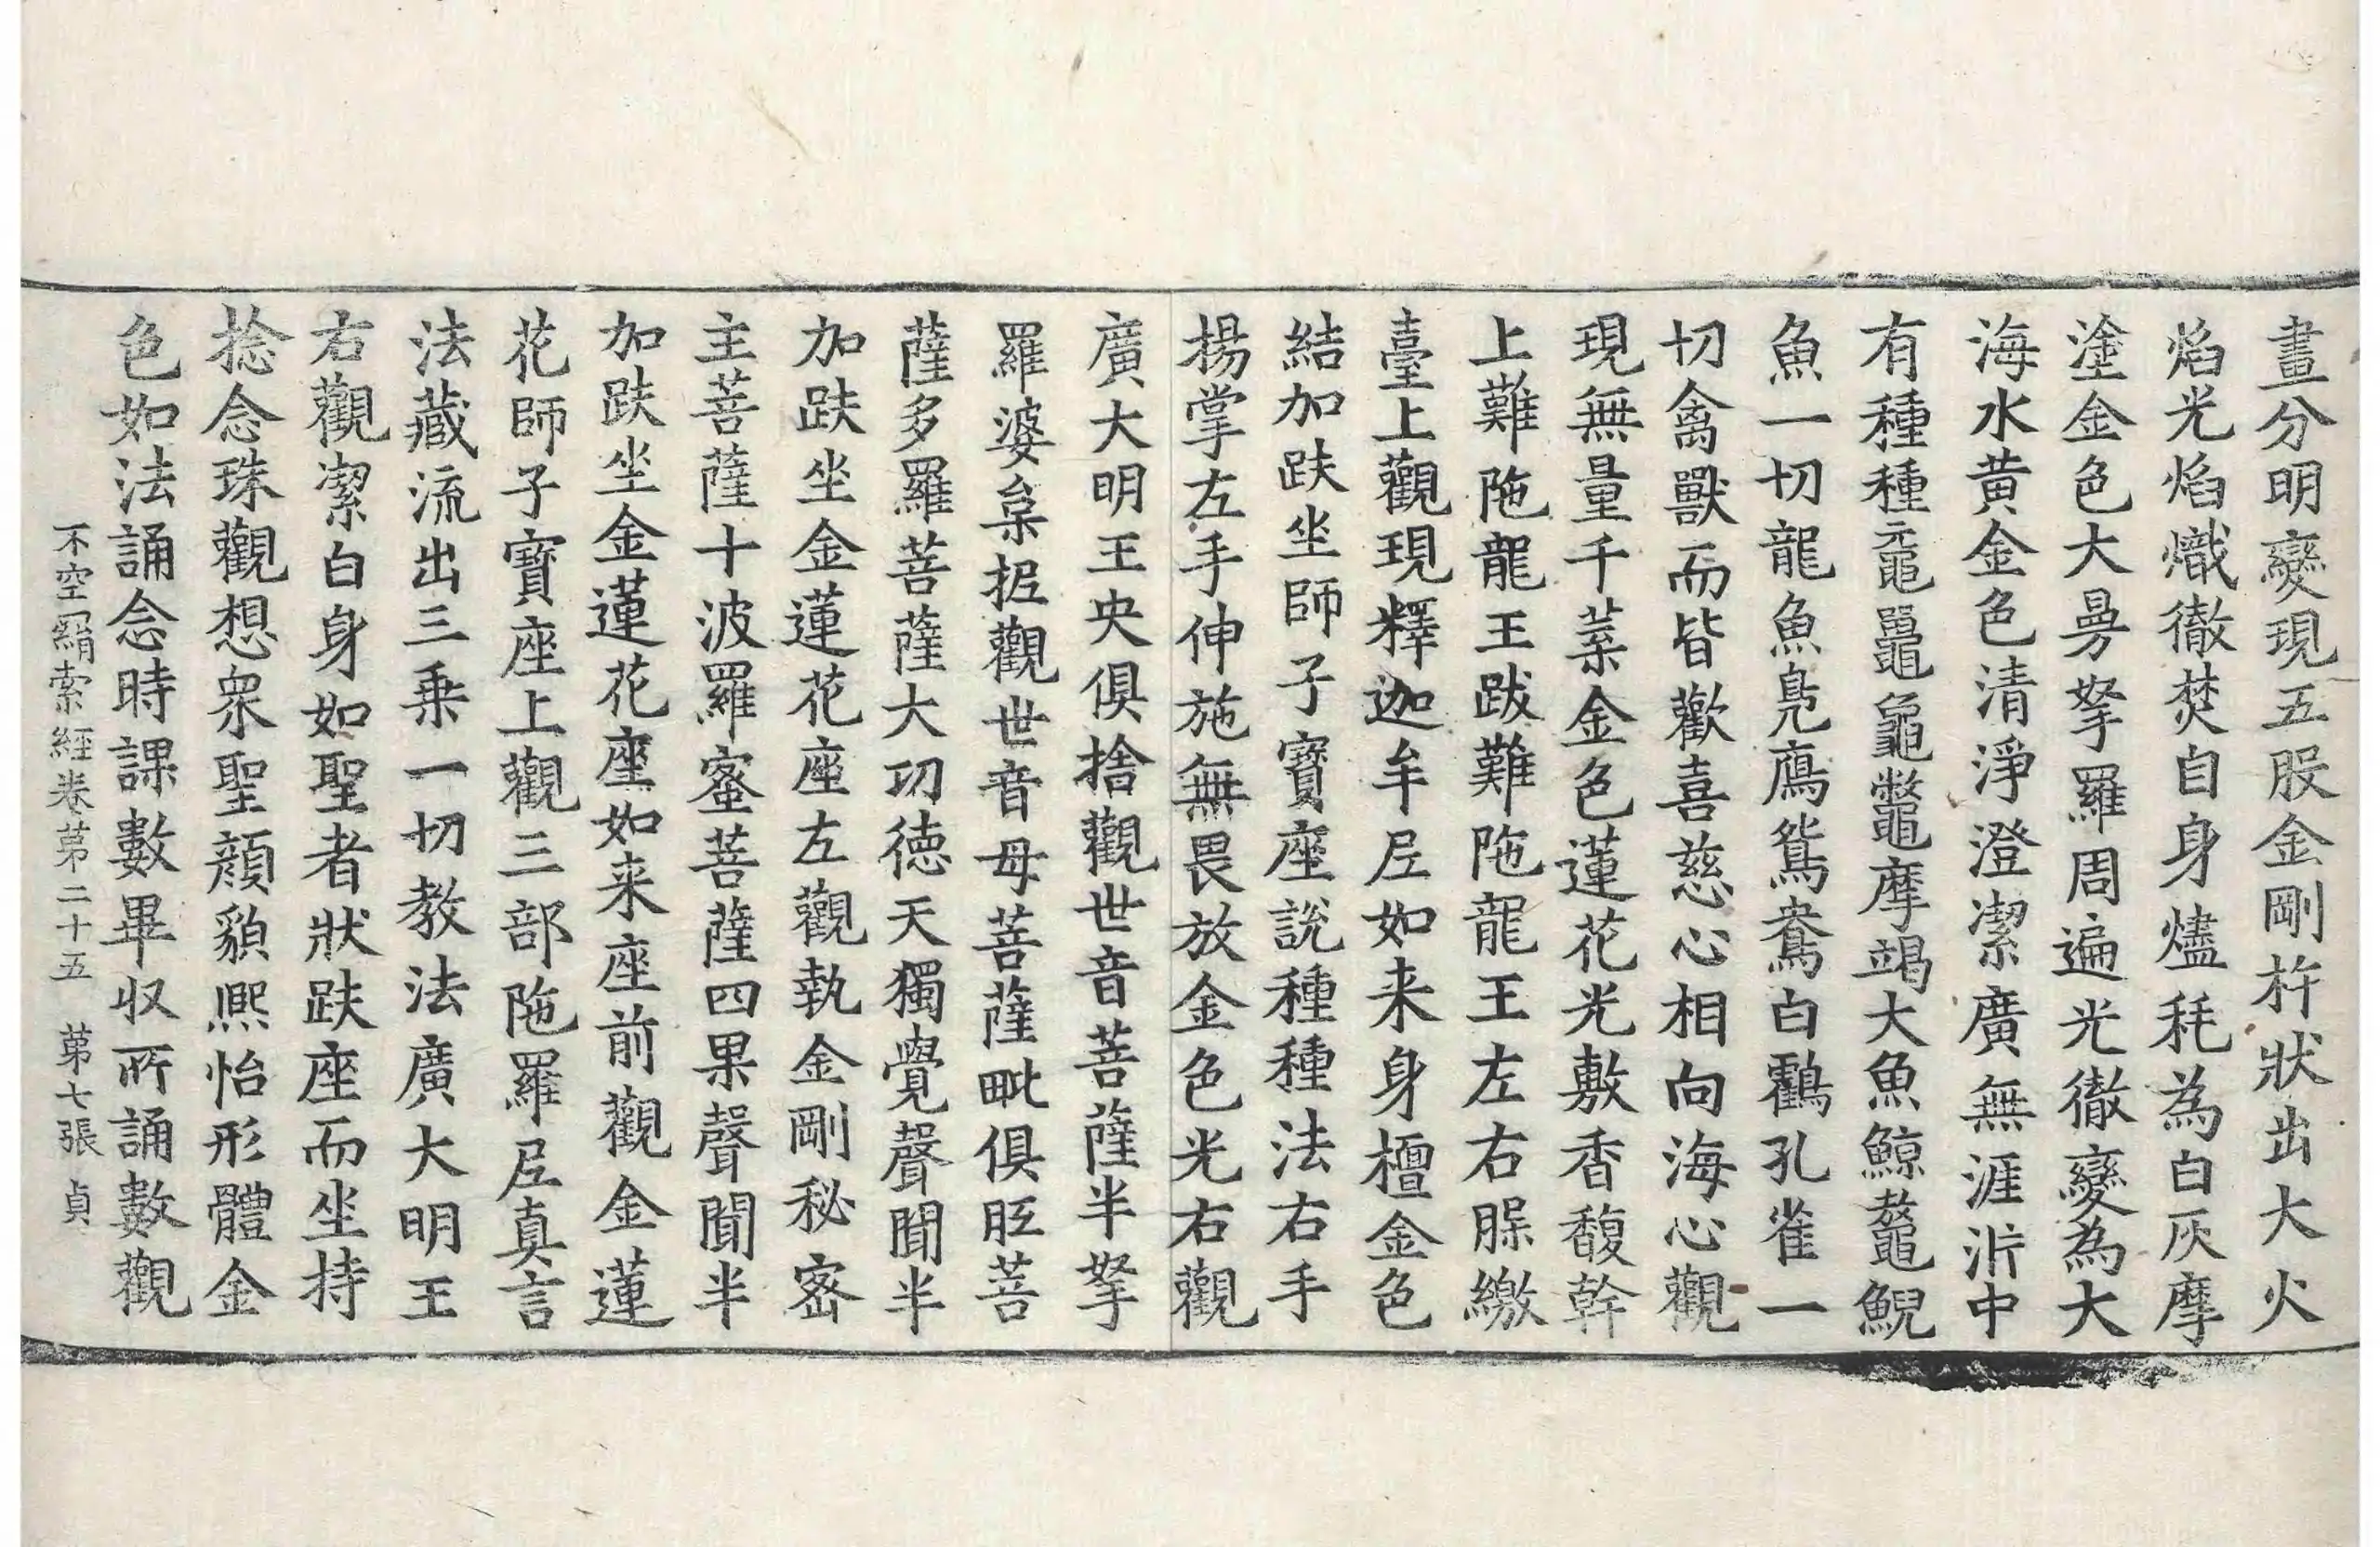 畫分明變現五股金剛杵狀出大火
焰光焰熾徹焚自身燼秏為白灰摩
塗金色大曼拏羅周遍光徹變為大
海水黄金色清淨澄潔廣無涯泝中
有種種黿鼉龜鼈摩竭大魚鯨鼇鯢
魚一切龍魚鳧鴈鴛鴦白鸖孔雀一
切禽獸而皆歡喜慈心相向海心觀
現無量千葉金色蓮花光敷香馥幹
上難陁龍王跋難陁龍王左右躶繳
臺上觀現釋迦牟㞐如来身檀金色
結加趺坐師子寶座說種種法右手
揚掌左手伸施無畏放金色光右觀
廣大明王央俱捨觀世音菩薩半拏
羅婆枲抳觀世音母菩薩毗俱胝菩
薩多羅菩薩大㓛徳天獨覺聲聞半
加趺坐金蓮花座左觀執金剛秘密
主菩薩十波羅蜜菩薩四果聲聞半
加趺坐金蓮花座如来座前觀金蓮
花師子寶座上觀三部陁羅㞐真言
法藏流出三乗一切教法廣大明王
右觀潔白身如聖者狀趺座而坐持
捻念珠觀想衆聖顔貌熈怡形體金
色如法誦念時課數畢収所誦數觀
不空羂索經卷第二十五 第七張 貞